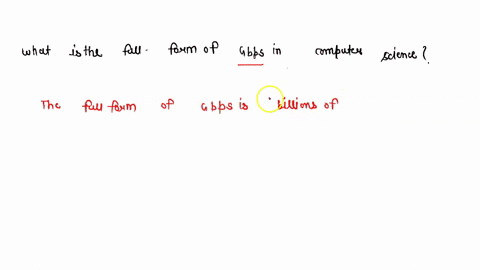 what is the full form of Gbps in computer science?
The full form of Gbps is billions of